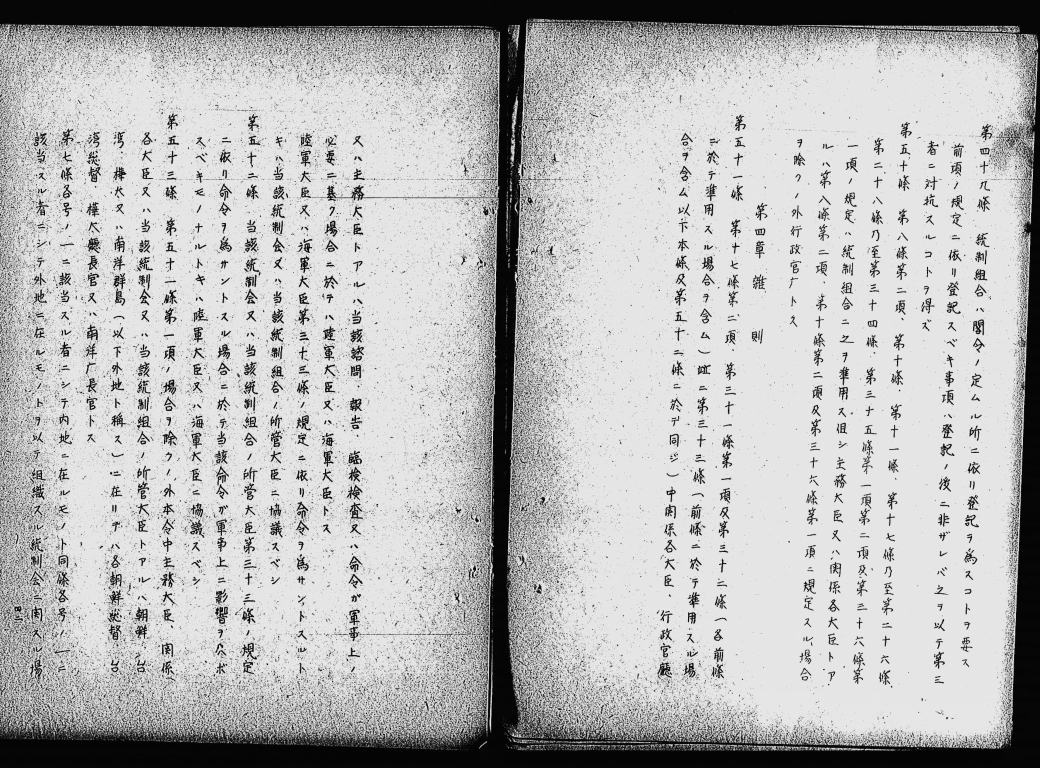 第四十九條 統制組合ハ閣令ノ定ムル所ニ依リ登記ヲ爲スコトヲ要ス
前項ノ規定ニ依リ登記スベキ事項ハ登記ノ後ニ非ザレバ之ヲ以テ第三
者ニ対抗スルコトヲ得ズ
第五十條 第八條第二項、第十條、第十一條、第十七條乃至第二十六條、
第二十八條乃至第三十四條、第三十五條第一項第二項及第三十六條第
一項ノ規定ハ統制組合ニ之ヲ準用ス但シ主務大臣又ハ関係各大臣トア
ルハ第八條第二項、第十條第二項及第三十六條第一項ニ規定スル場合
ヲ除クノ外行政官庁トス
第四章 雑則
第五十一條 第十七條第二項、第三十一條第一項及第三十二條(各前條
ニ於テ準用スル場合ヲ含ム)竝ニ第三十三條(前條ニ於テ準用スル場
合ヲ含ム以下本條及第五十二條ニ於テ同ジ)中関係各大臣、行政官廳
又ハ主務大臣トアルハ当該諮問、報告、臨検検査又ハ命令ガ軍事上ノ
必要ニ基ク場合ニ於テハ陸軍大臣又ハ海軍大臣トス
陸軍大臣又ハ海軍大臣第三十三條ノ規定ニ依リ命令ヲ爲サントスルト
キハ当該統制会又ハ当該統制組合ノ所管大臣ニ協議スベシ
第五十二條 当該統制会又ハ当該統制組合ノ所管大臣第三十三條ノ規定
ニ依リ命令ヲ爲サントスル場合ニ於テ当該命令ガ軍事上ニ影響ヲ及ボ
スベキモノナルトキハ陸軍大臣又ハ海軍大臣ニ協議スベシ
第五十三條 第五十一條第一項ノ場合ヲ除クノ外本令中主務大臣、関係
各大臣又ハ当該統制会又ハ当該統制組合ノ所管大臣トアルハ朝鮮、台
湾、樺太又ハ南洋群島(以下外地ト稱ス)ニ在リテハ各朝鮮総督、台
湾総督、樺太廳長官又ハ南洋庁長官トス
第七條各号ノ一ニ該当スル者ニシテ内地ニ在ルモノト同條各号ノ一ニ
該当スル者ニシテ外地ニ在ルモノトヲ以テ組織スル統制会ニ関スル場